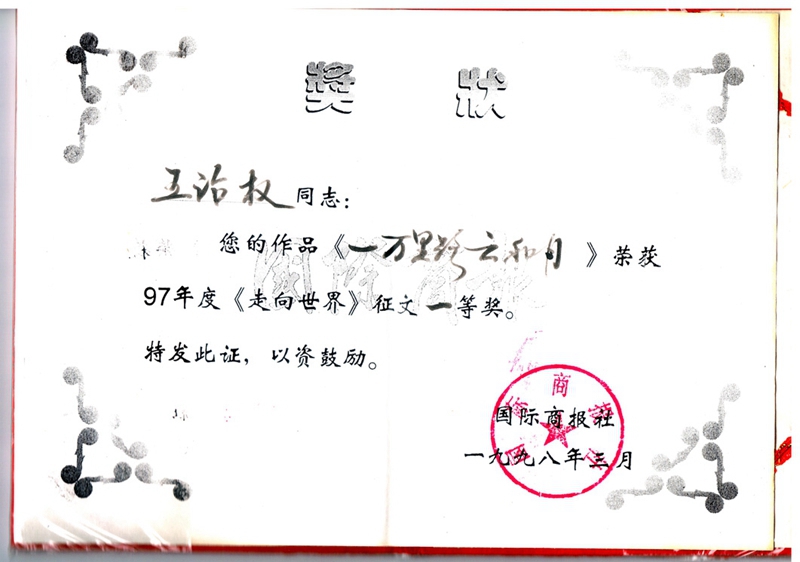 奖 状
王治权同志：
您的作品《一万里路云和月》荣获
97年度《走向世界》征文一等奖。
特发此证，以资鼓励。
国际商报
国际商报社
一九九八年三月
国际商报社